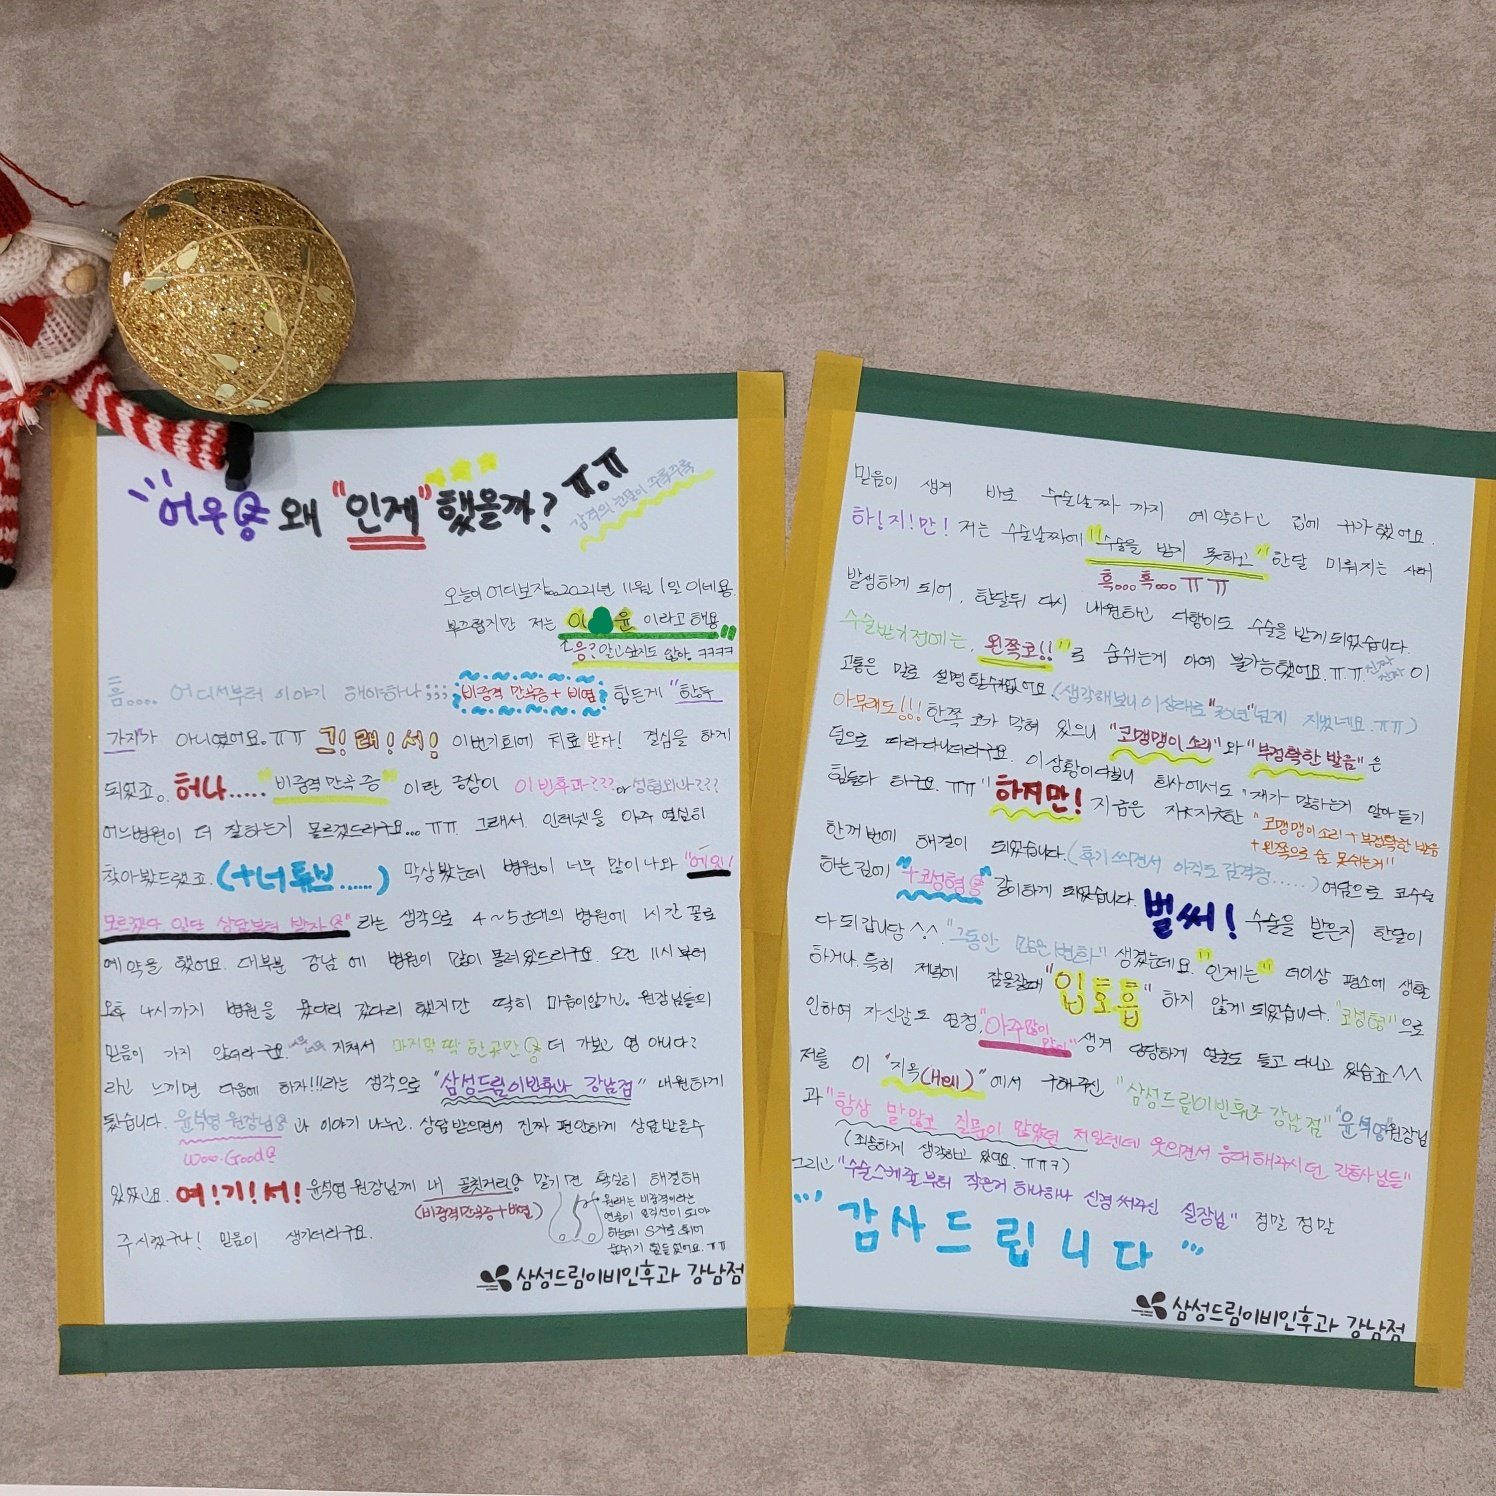 어우 왜 "인제" 했을까? ㅠ.ㅠ
감격의 눈물이 주륵주륵
오늘이 어디보자...2021년 11월 1일 이네용.
부끄럽지만 저는 이 윤 이라고해용
응? 알고싶지도 않아. ㅋㅋㅋㅋ
흠.... 어디서부터 이야기 해야하나;;; 비중격 만곡증 + 비염 힘든게 "한두
가지"가 아니였어요.ㅠㅠ 그!래!서! 이번기회에 치료 받자! 결심을 하게
되었죠. 허나..... "비중격만곡증" 이란 증상이 이빈후과??? or 성형외과???
어느병원이 더 잘하는지 모르겠드라구요... ㅠㅠ. 그래서 인터넷을 아주 열심히
찾아봤드랬죠. (+너튜브......) 막상봤는데 병원이 너무 많이 나와 "에잇!
모르겠다 일단 상담부터 받자" 라는 생각으로 4~5군데의 병원에 1시간 꼴로
예약을 했어요. 대부분 강남에 병원이 많이 몰려있드라구요. 오전 11시 부터
오후 4시까지 병원을 왔다리 갔다리 했지만 딱히 마음이안가고. 원장님들의
믿음이 가지 않더라구요. 지쳐서 마지막 딱 한곳만 더 가보고 영 아니다?
라고 느끼면 다음에 하자!!!라는 생각으로 "삼성드림이빈후과 강남점" 내원하게
됬습니다. 윤석영 원장님 과 이야기 나누고. 상담받으면서 진짜 편안하게 상담받을수
woo-Good
있었고요. 여!기!서! 윤석영 원장님께 내 골칫거리 맡기면 확실히 해결해
(비중격만곡증+비염)
주시겠구나! 믿음이 생기더라구요.
원래는 비중격이라는
연골이 일직선이 되야
하는데 S자로 휘어
숨쉬기 힘들었어요. ㅠㅠ
삼성드림이비인후과 강남점
믿음이 생겨 바로 수술날짜 까지 예약하고 집에 귀가했어요.
하!지!만! 저는 수술날짜에 "수술을 받지 못하고" 한달 미뤄지는 사태
흑... 흑... ㅠㅠ
발생하게 되어. 한달뒤 다시 내원하고 다행이도 수술을 받게되었습니다.
수술받기전에는. 왼쪽코!!"로 숨쉬는게 아예 불가능했어요.ㅠㅠ 진짜 진짜 이
고통은 말로 설명할수없어요. (생각해보니 이상태로 "30년"넘게 지냈네요.ㅠㅠ)
아무래도!!! 한쪽 코가 막혀 있으니 "코맹맹이 소리"와 "부정확한 발음"은
덤으로 따라다니더라구요. 이상황이다보니 회사에서도 "제가 말하는거 알아듣기
힘들다 하구요. ㅠㅠ" 하지만! 지금은 자잘자잘한 "코맹맹이소리+부정확한 발음
+왼쪽으로 숨 못쉬는거"
한꺼번에 해결이 되었습니다. (후기 쓰면서 아직도 감격중.....) 여담으로 코수술
하는김에 "+코성형" 같이하게 되었습니다. 벌써! 수술을 받은지 한달이
다되갑니담^^. "그동안 많은 변화" 생겼는데요. "인제는" 더이상 평소에 생활
하거나. 특히 저녁에 잠을잘때 "입호흡" 하지 않게 되었습니다. "코성형"으로
인하여 자신감도 엄청, "아주많이 많이" 생겨 당당하게 얼굴도 들고 다니고 있습죠^^
저를 이 "지옥(Hell)"에서 구해주신 "삼성드림이빈후과 강남점" "윤석영"원장님
과 "항상 말많고 질문이 많았던 저일텐데 웃으면서 응대해주시던 간호사님들"
(죄송하게 생각하고 있어요. ㅠㅠㅋ)
그리고 "수술스케줄 부터 작은거 하나하나 신경써주신 실장님" 정말 정말
감사드립니다
삼성드림이비인후과 강남점